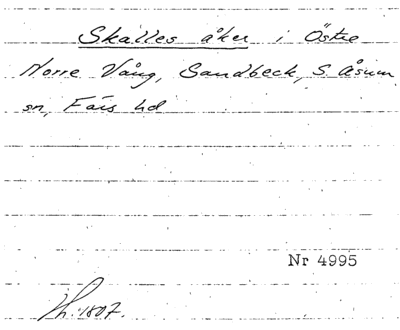 Skalles åker i Östre
Norre Vång, Sandbeck, S. Åsum
sn, Färs hd
Nr 4995
Lh. 1807.